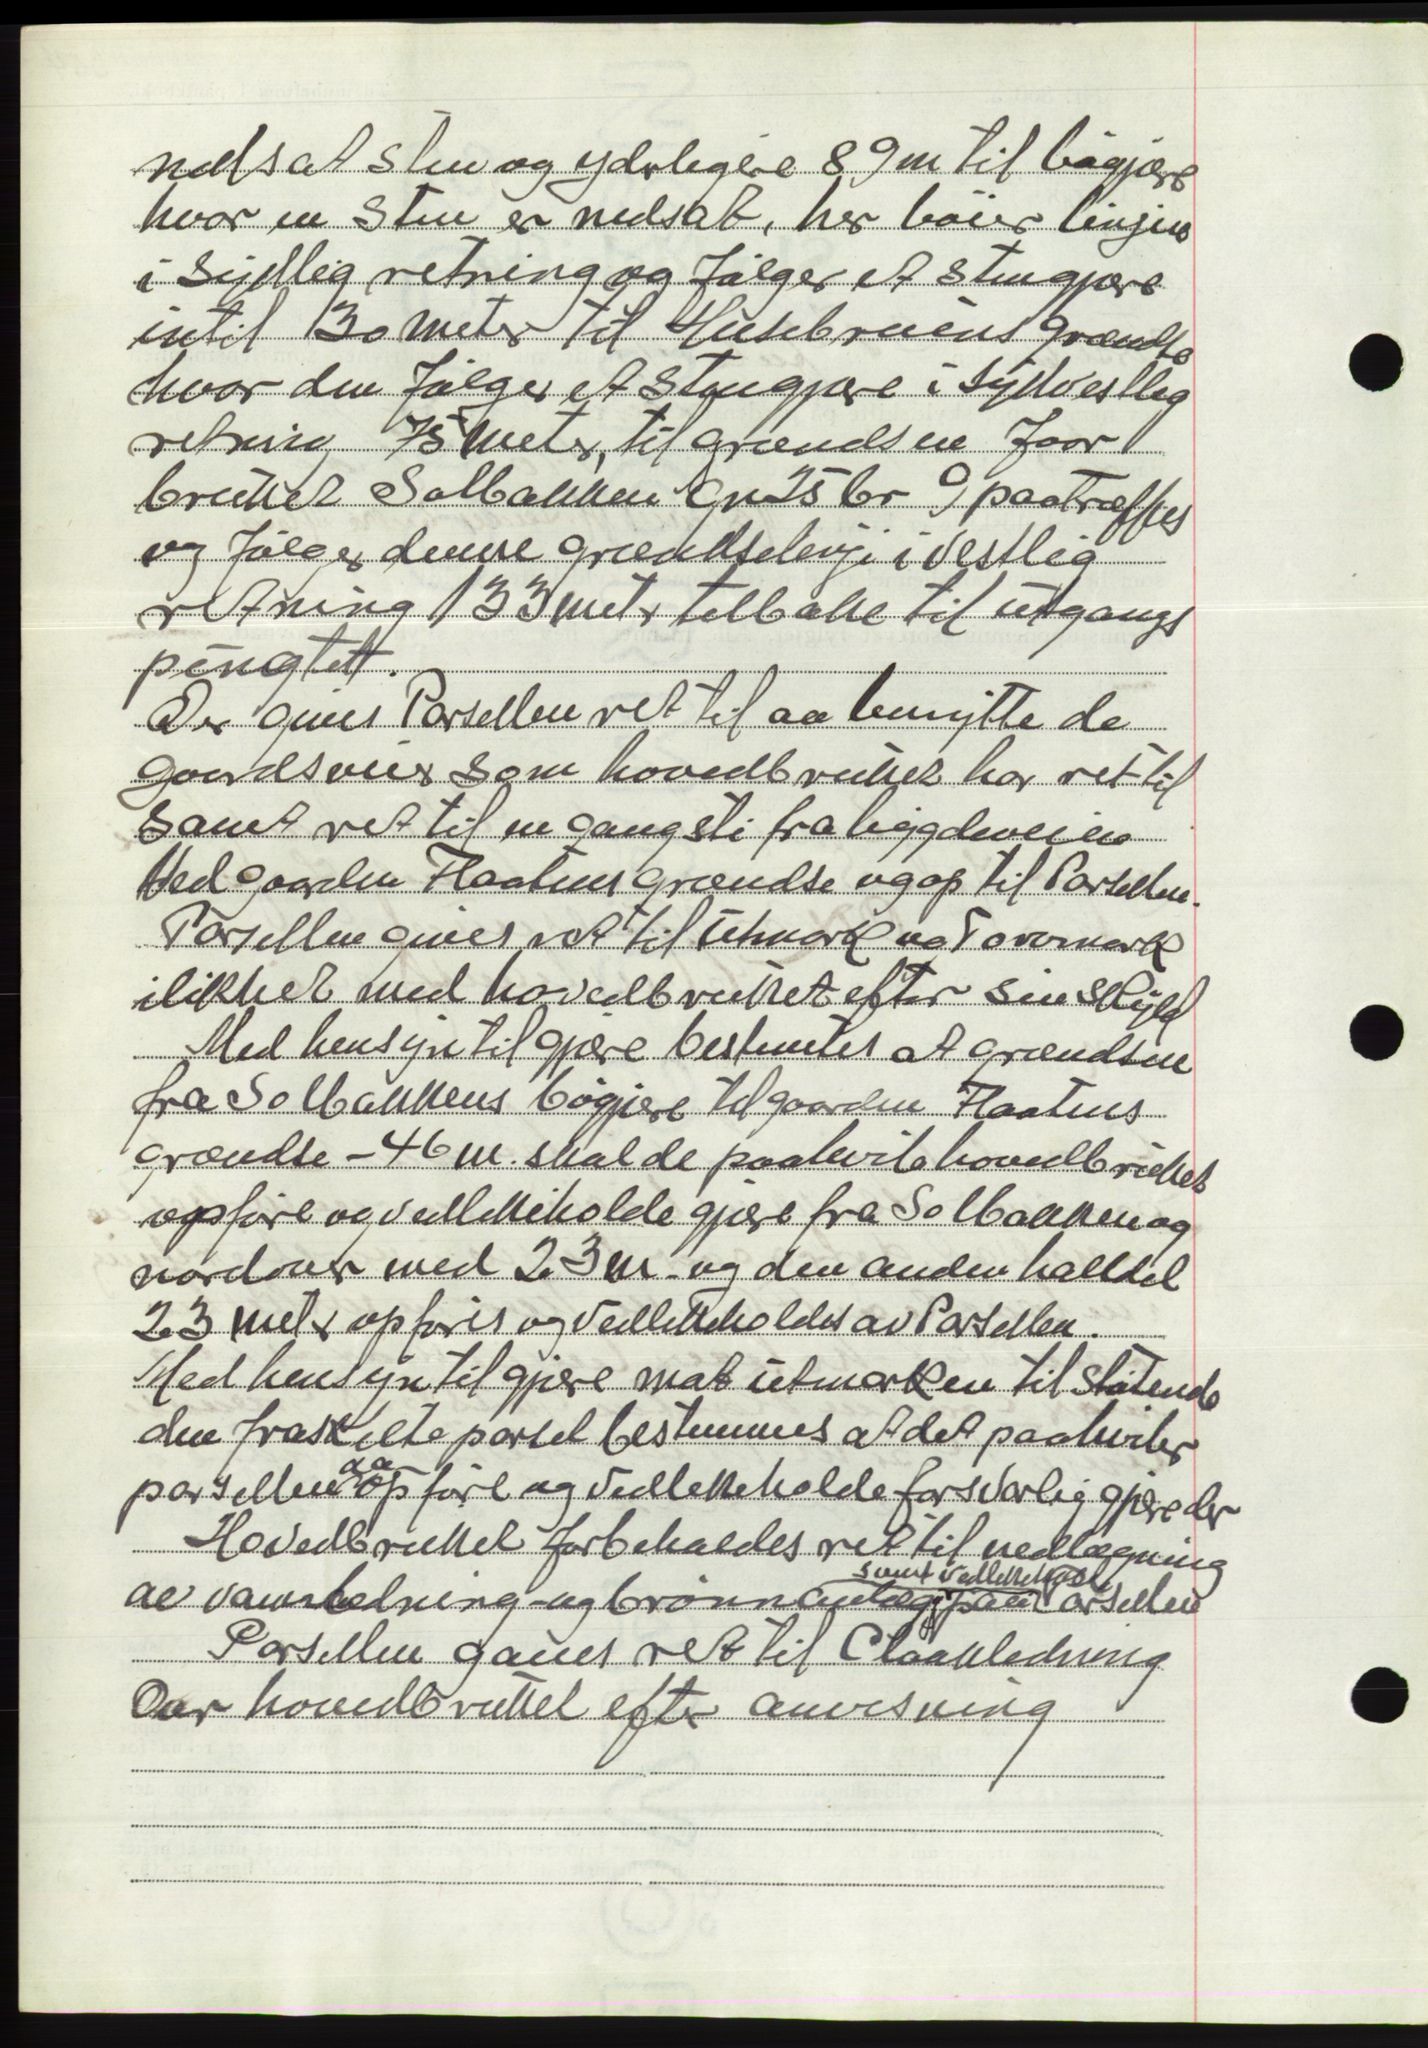 nedsat sten og yderligere 89 m til bøgjære
hvor en sten er nedsat, her bøier linjen
i sydlig retning og følger et stengjære
intil 130 meter til Husebruens grændse
hvor den følger et stengjære i sydvestlig
retning 75 meter, til grændsen for
bruket Solbakken gn 25 br 9 paatræffes
og følger denne grændselinje i vestlig
retning 133 meter tilbake til utgangs
pungtet.
Der gives Parsellen ret til aa benytte de
gaardsveier som hovedbruket har ret til
samt ret til en gangsti fra bygdeveien
ved gaarden Flaatens grændse og op til Parsellen.
Parsellen gives ret til utmark og Torvmark
i likhet med hovedbruket efter sin skyld
Med hensyn til gjære bestemtes at grændsen
fra Solbakkens bøgjære til gaarden Flaatens
grændse - 46 m. skal de paahvile hovedbruket
opføre og vedlikeholde gjære fra Solbakken og
nordover med 23 m. og den anden halvdel
23 meter opføres og vedlikeholdes av Parsellen.
Med hensyn til gjære mot utmarken tilstøtende
den fraskilte parsel bestemmes at det paahviler
parsellen aa opføre og vedlikeholde forsvarlig gjære der
Hovedbruket forbeholdes ret til nedlægning
samt vedlikehold
av vannledning- og brønnanlæg paa Parsellen
Parsellen gives ret til Cloakledning
over hovedbruket efter anvisning